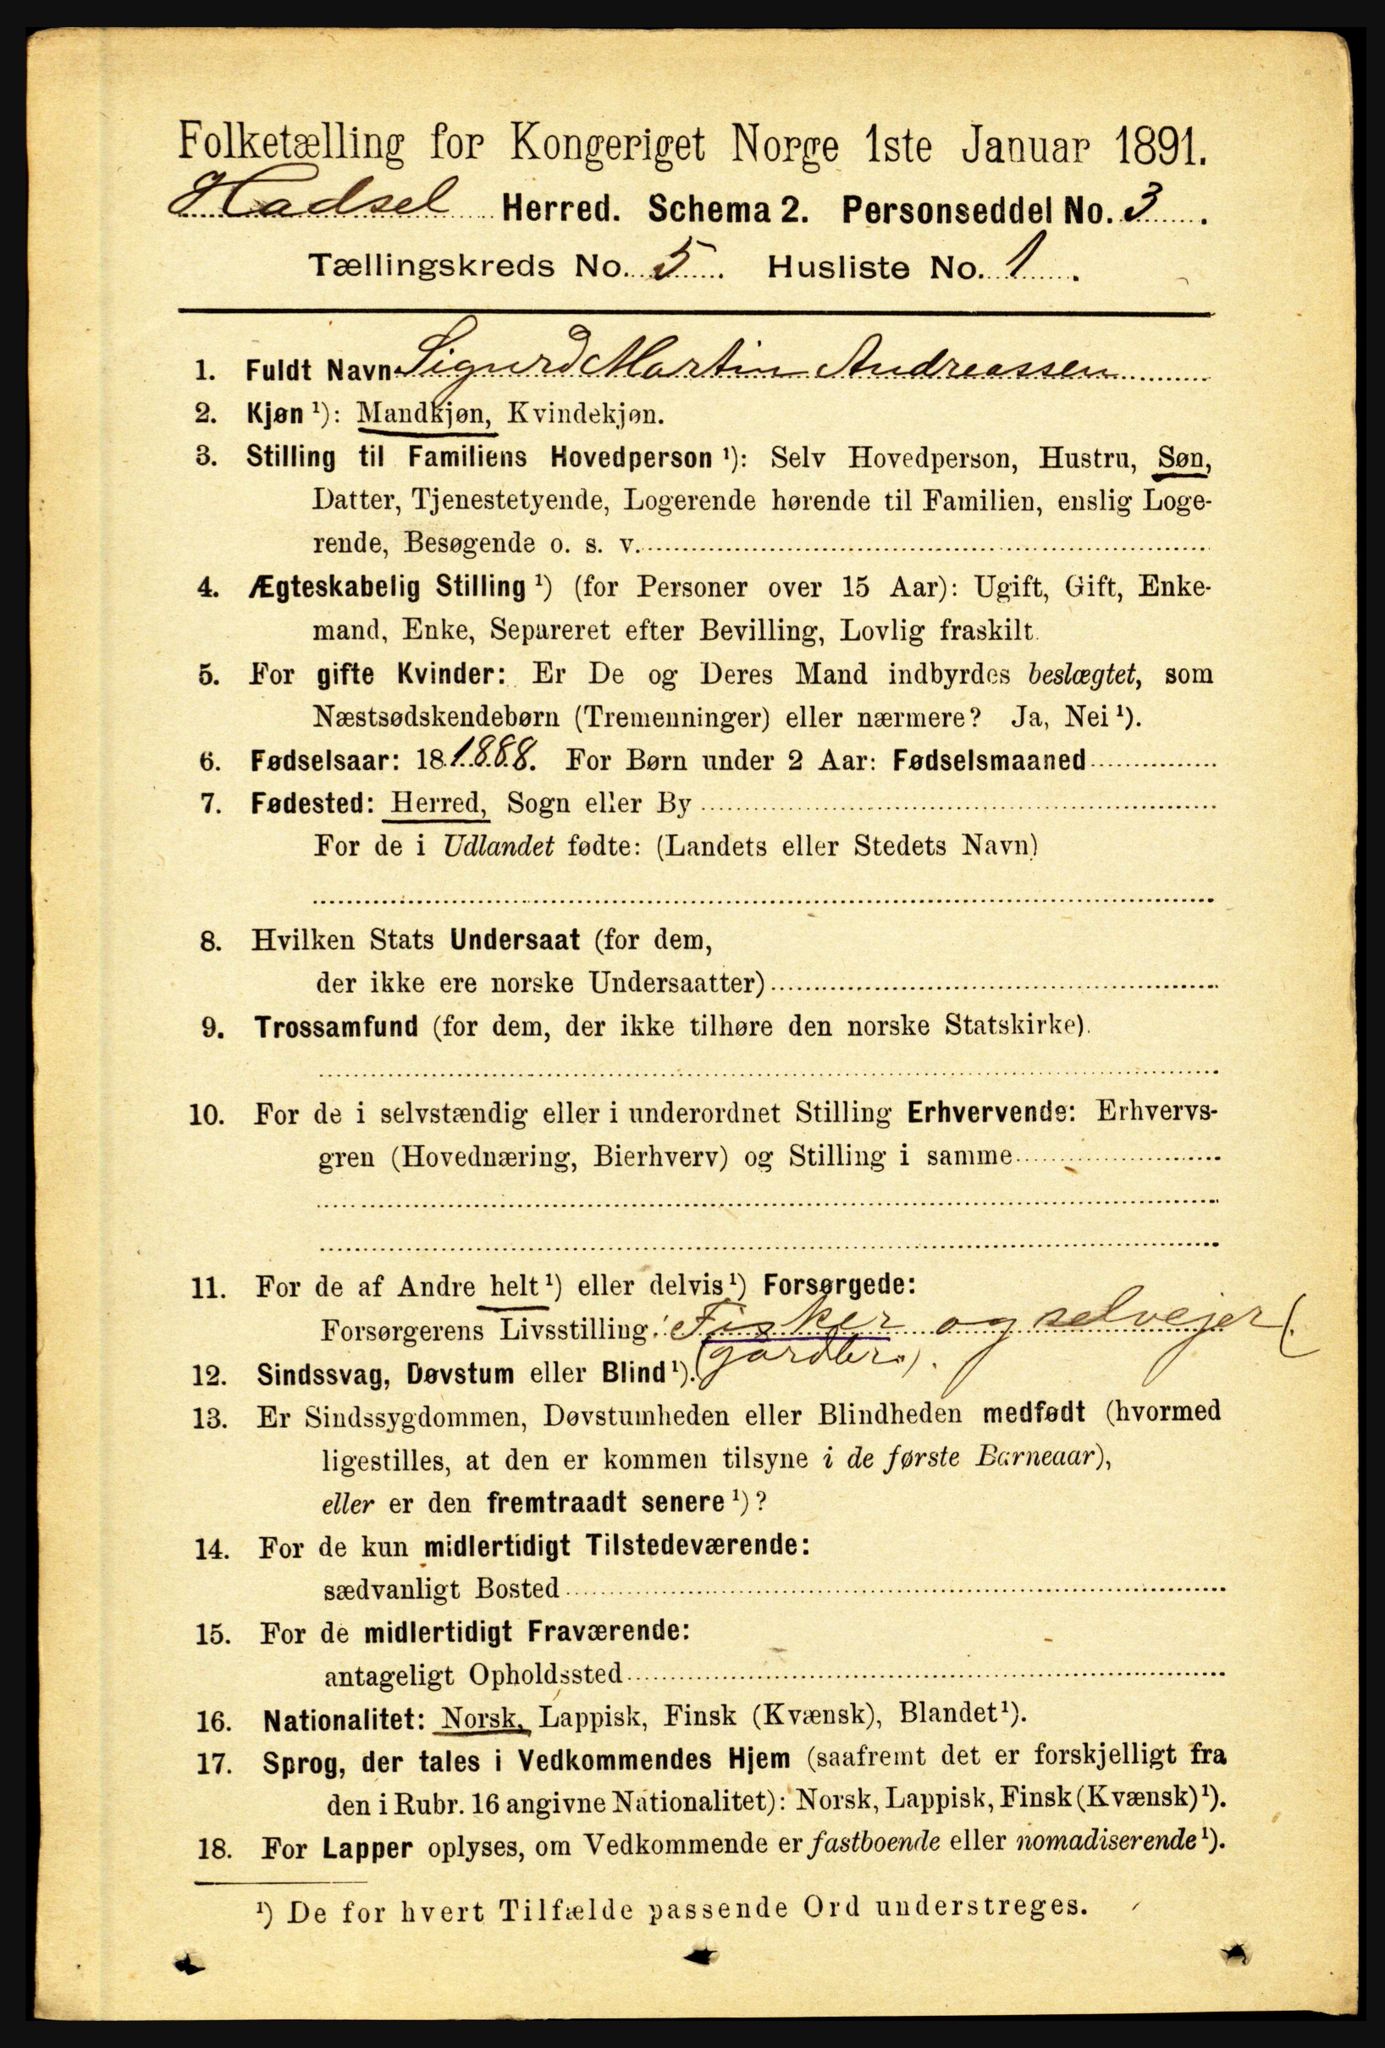 Folketælling for Kongeriget Norge 1ste Januar 1891.
Hadsel Herred. Schema 2. Personseddel No. 3.
Tællingskreds No. 5. Husliste No. 1.
1. Fuldt Navn Sigurd Martin Andreassen
2. Kjøn ¹): Mandkjøn, Kvindekjøn.
3. Stilling til Familiens Hovedperson ¹): Selv Hovedperson, Hustru, Søn,
Datter, Tjenestetyende, Logerende hørende til Familien, enslig Loge-
rende, Besøgende o. s. v.
4. Ægteskabelig Stilling ¹) (for Personer over 15 Aar): Ugift, Gift, Enke-
mand, Enke, Separeret efter Bevilling, Lovlig fraskilt.
5. For gifte Kvinder: Er De og Deres Mand indbyrdes beslægtet, som
Næstsødskendebørn (Tremenninger) eller nærmere? Ja, Nei ¹).
6. Fødselsaar: 18 1888. For Børn under 2 Aar: Fødselsmaaned
7. Fødested: Herred, Sogn eller By
For de i Udlandet fødte: (Landets eller Stedets Navn)
8. Hvilken Stats Undersaat (for dem,
der ikke ere norske Undersaatter)
9. Trossamfund (for dem, der ikke tilhøre den norske Statskirke).
10. For de i selvstændig eller i underordnet Stilling Erhvervende: Erhvervs-
gren (Hovednæring, Bierhverv) og Stilling i samme
11. For de af Andre helt ¹) eller delvis ¹) Forsørgede:
Forsørgerens Livsstilling: Fisker og selvejer (.
12. Sindssvag, Døvstum eller Blind ¹). (gårdbr.).
13. Er Sindssygdommen, Døvstumheden eller Blindheden medfødt (hvormed
ligestilles, at den er kommen tilsyne i de første Barneaar),
eller er den fremtraadt senere ¹)?
14. For de kun midlertidigt Tilstedeværende:
sædvanligt Bosted
15. For de midlertidigt Fraværende:
antageligt Opholdssted
16. Nationalitet: Norsk, Lappisk, Finsk (Kvænsk), Blandet ¹).
17. Sprog, der tales i Vedkommendes Hjem (saafremt det er forskjelligt fra
den i Rubr. 16 angivne Nationalitet): Norsk, Lappisk, Finsk (Kvænsk) ¹).
18. For Lapper oplyses, om Vedkommende er fastboende eller nomadiserende ¹).
¹) De for hvert Tilfælde passende Ord understreges.